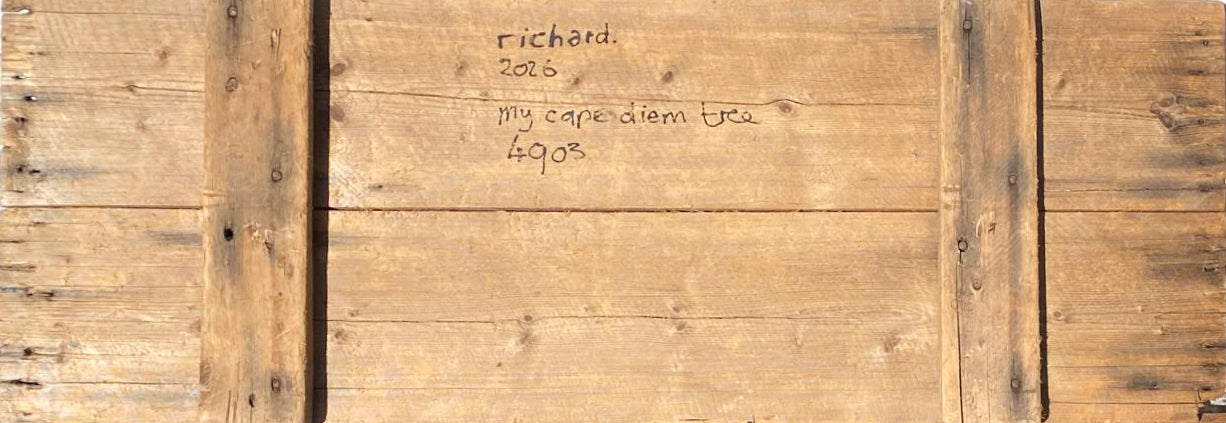 richard.
2026
my cape diem tree
4903